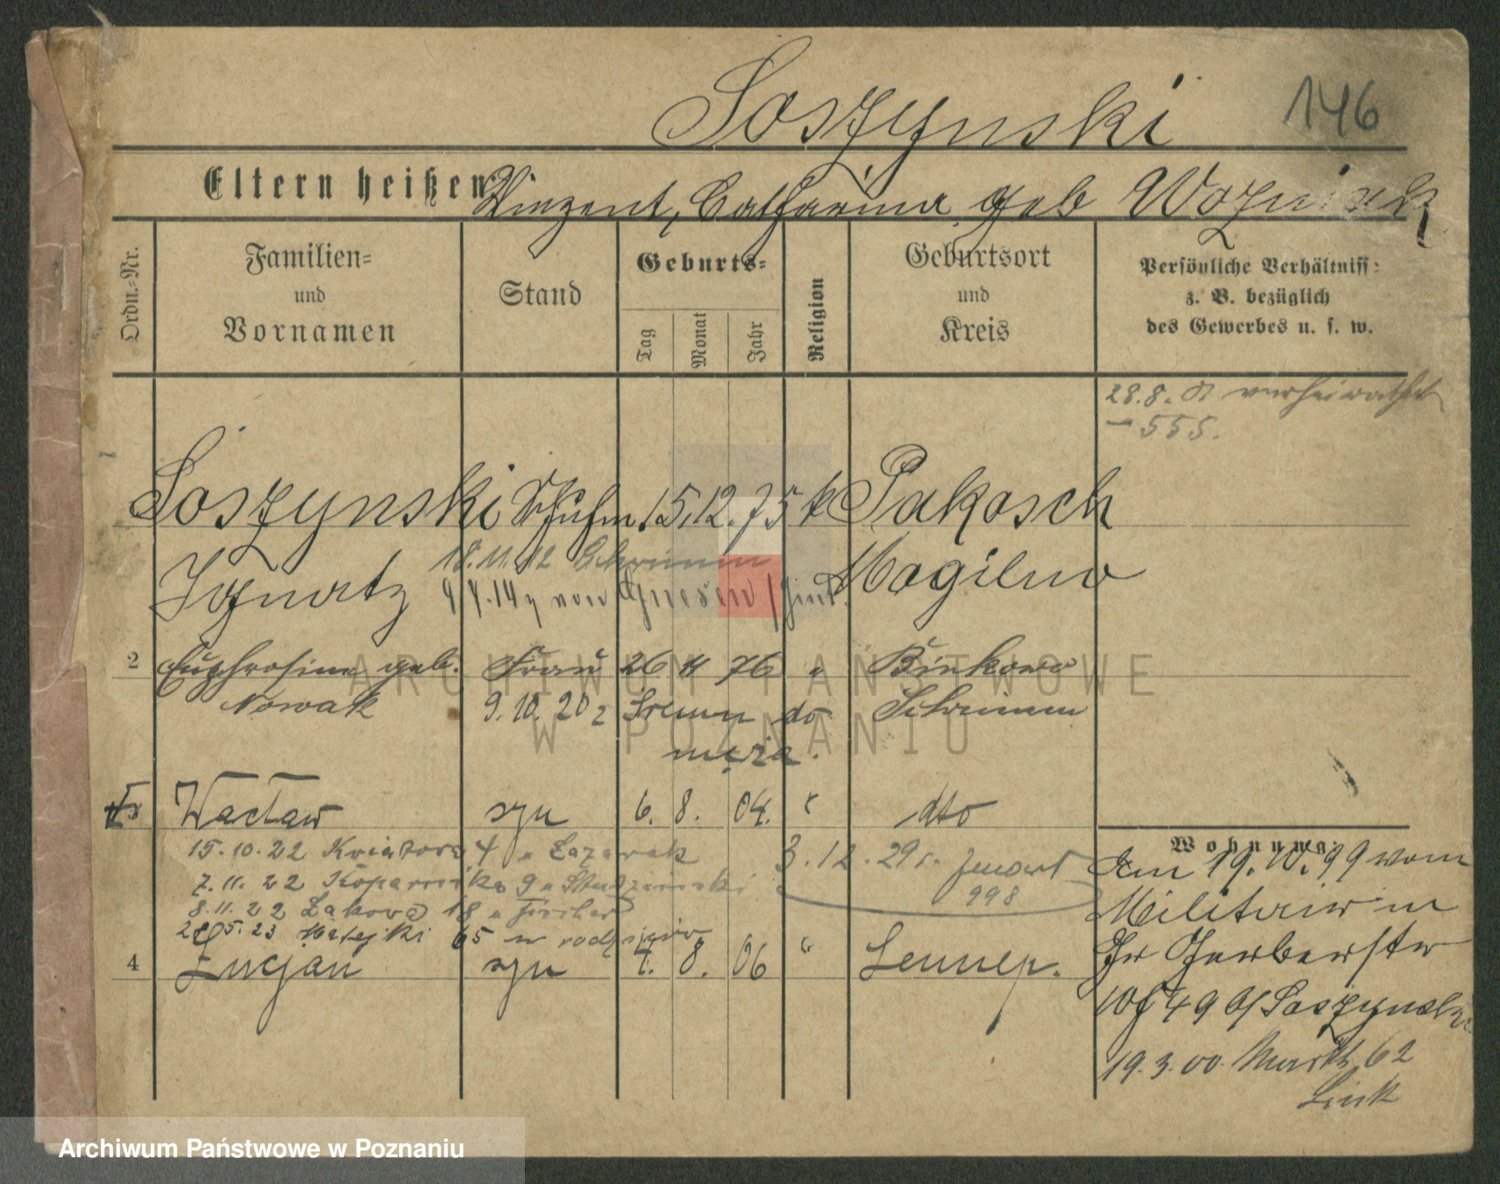 Soszynski 146
Eltern heißen: Vinzent, Catharina geb Wozniak
Ordn.-Nr.
Familien-
und
Vornamen
Stand
Geburts-
Tag
Monat
Jahr
Religion
Geburtsort
und
Kreis
Persönliche Verhältniss:
z. B. bezüglich
des Gewerbes u. s. w.
28.8. verheirathet
– 555.
Soszynski Schuhm. 15. 12. 75 k Pakosch
18.11.12 Schrimm
Ignatz Mogilno
4.14 von Gnesen
2 Euphrosine geb. Frau 26 76 " Binkowo
Nowak 9.10.20 z Sremu do Schrimm
męża.
3 Wacław syn 6. 8. 04. " dto
15.10.22 4 u
7.11.22 9 u
8.11.22 Łąkova 18 u Fischer
5.23 Matejki 65 u
3.12.29 r.
998
4 Lucjan syn 7. 8. 06 " Lennep.
Wohnung
Am 19. 99 vom
Militair in
Gr Gerberstr
49 Soszynski
19.3.00. 62
Link
ARCHIWUM PAŃSTWOWE
W POZNANIU
Archiwum Państwowe w Poznaniu